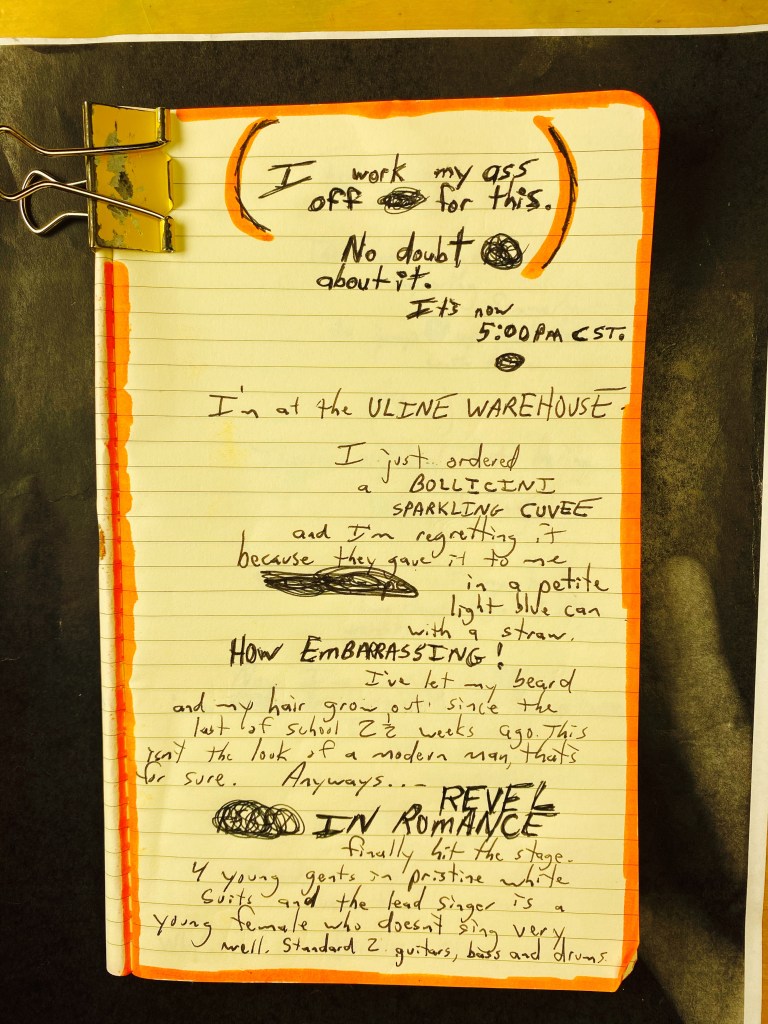 I work my ass
off for this.
No doubt
about it.
It's now
5:00PM CST.
I'm at the ULINE WAREHOUSE.
I just ordered
a BOLLICINI
SPARKLING CUVEE
and I'm regretting it
because they gave it to me
in a petite
light blue can
with a straw.
HOW EMBARRASSING!
I've let my beard
and my hair grow out since the
last of school 2½ weeks ago. This
isn't the look of a modern man, that's
for sure. Anyways...
REVEL
IN ROMANCE
finally hit the stage.
4 young gents in pristine white
suits and the lead singer is a
young female who doesn't sing very
well. Standard 2 guitars, bass and drums.